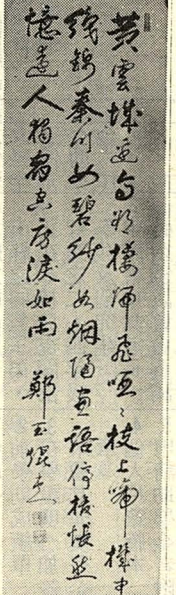 黄雲城邊烏欲棲歸飛啞〻枝上啼機中
織錦秦川女碧紗如烟隔窗語停梭悵然
憶遠人獨宿空房淚如雨 鄭玉焜